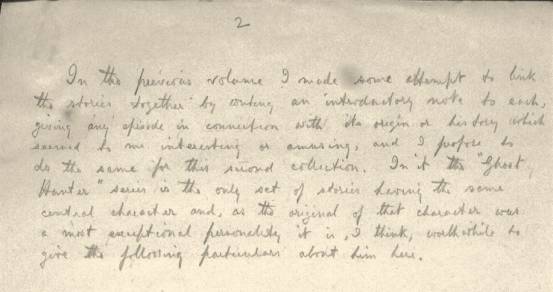 2
In the previous volume I made some attempt to link
the stories together by writing an introductory note to each,
giving any episode in connection with its origin or history which
seemed to me interesting or amusing, and I propose to
do the same for this second collection. In it the "Ghost
Hunter" series is the only set of stories having the same
central character and, as the original of that character was
a most exceptional personality it is, I think, worthwhile to
give the following particulars about him here.